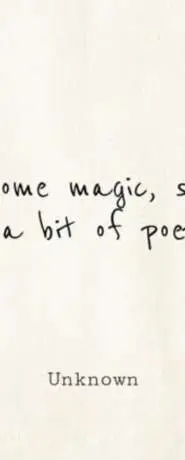 ome magic, s
a bit of poe
Unknown